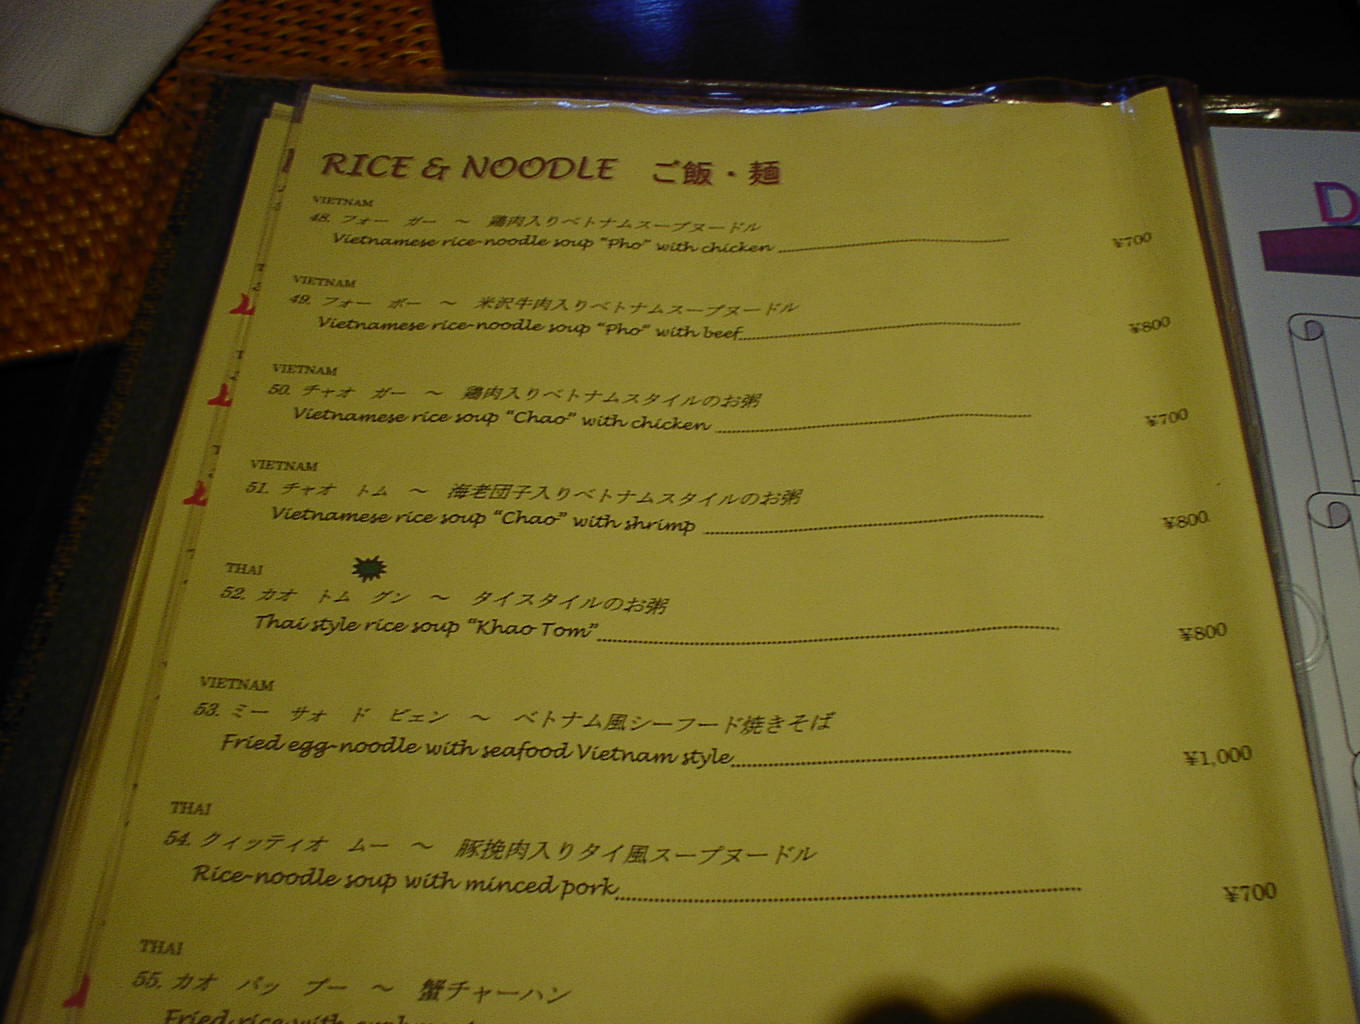 RICE & NOODLE ご飯・麺
VIETNAM
48. フォー ガー ～ 鶏肉入りベトナムスープヌードル
Vietnamese rice-noodle soup "Pho" with chicken ¥700
VIETNAM
49. フォー ボー ～ 米沢牛肉入りベトナムスープヌードル
Vietnamese rice-noodle soup "Pho" with beef ¥800
VIETNAM
50. チャオ ガー ～ 鶏肉入りベトナムスタイルのお粥
Vietnamese rice soup "Chao" with chicken ¥700
VIETNAM
51. チャオ トム ～ 海老団子入りベトナムスタイルのお粥
Vietnamese rice soup "Chao" with shrimp ¥800
THAI
52. カオ トム グン ～ タイスタイルのお粥
Thai style rice soup "Khao Tom" ¥800
VIETNAM
53. ミー サォ ド ビェン ～ ベトナム風シーフード焼きそば
Fried egg-noodle with seafood Vietnam style ¥1,000
THAI
54. クィッティオ ムー ～ 豚挽肉入りタイ風スープヌードル
Rice-noodle soup with minced pork ¥700
THAI
55. カオ パッ プー ～ 蟹チャーハン
Fried rice with